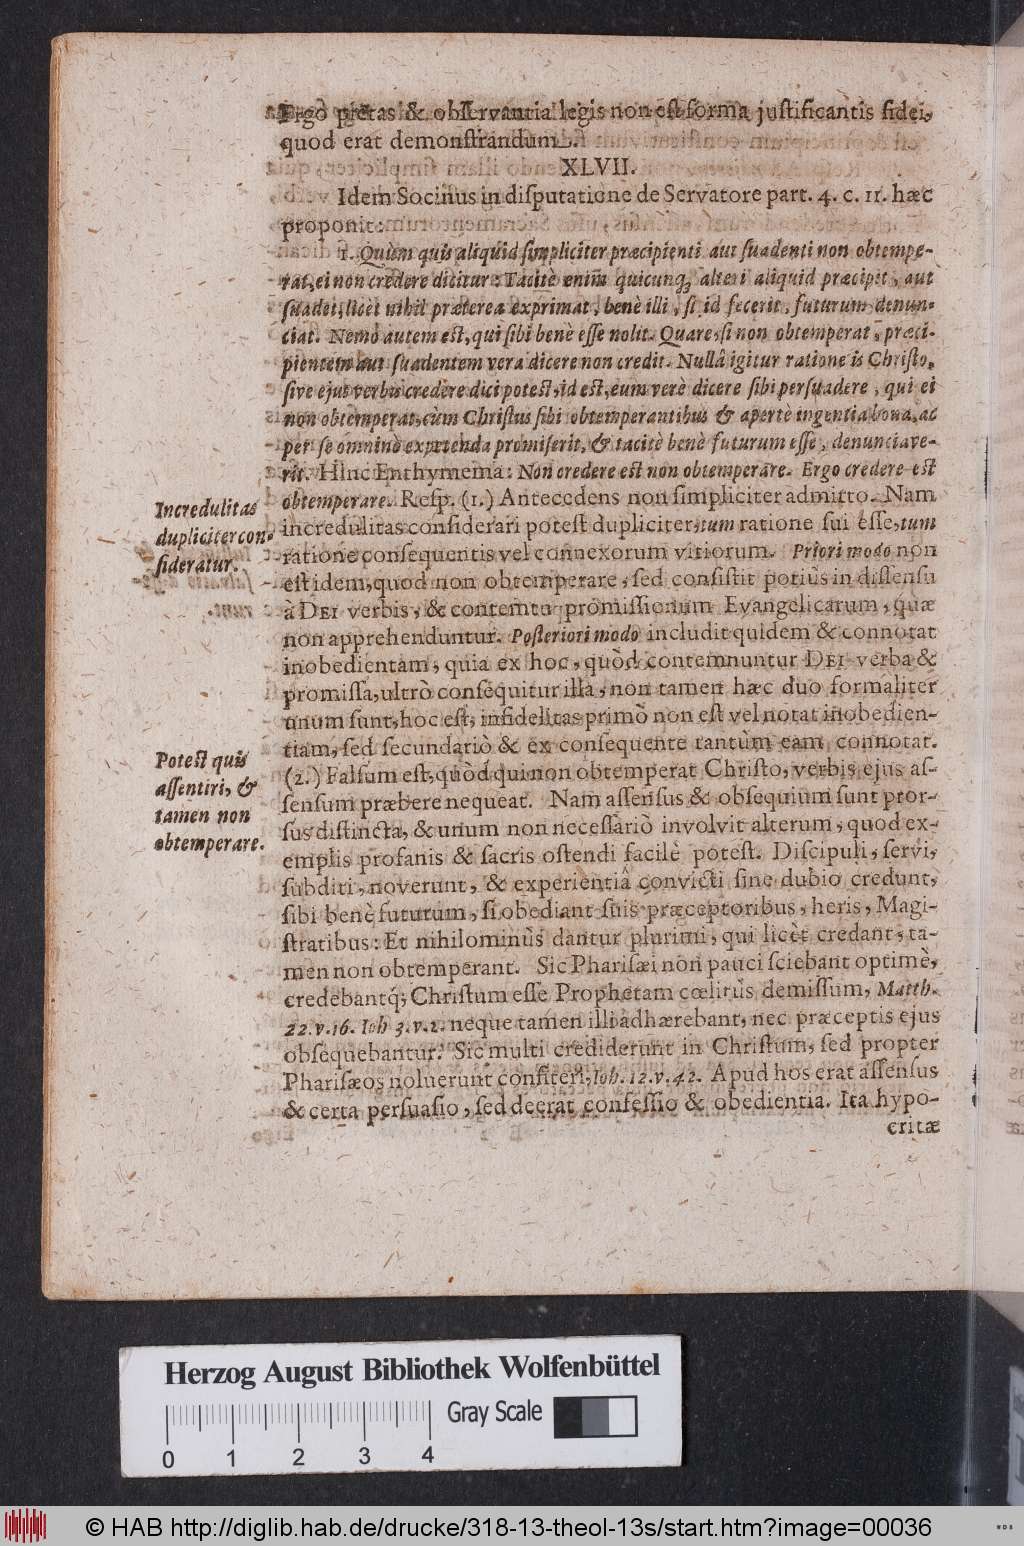 Ergò pietas & observantia legis non est forma justificantis fidei,
quod erat demonstrandum.
XLVII.
Idem Socinus in disputatione de Servatore part. 4. c. 11. hæc
proponit:
1. Quùm quis aliquid simpliciter præcipienti aut suadenti non obtempe-
rat, ei non credere dicitur: Tacitè enim quicunq; alteri aliquid præcipit, aut
suadet, licèt nihil præterea exprimat, benè illi, si id fecerit, futurum denun-
ciat. Nemo autem est, qui sibi benè esse nolit. Quare, si non obtemperat, præci-
pientem aut suadentem vera dicere non credit. Nullâ igitur ratione is Christo,
sive ejus verbis credere dici potest, id est, eum verè dicere sibi persuadere, qui ei
non obtemperat, cùm Christus sibi obtemperantibus & apertè ingentia bona, ac
per se omninò expetenda promiserit, & tacitè benè futurum esse, denunciave-
rit. Hinc Enthymema: Non credere est non obtemperare. Ergo credere est
obtemperare. Resp. (1.) Antecedens non simpliciter admitto. Nam
incredulitas considerari potest dupliciter, tum ratione sui esse, tum
ratione consequentis vel connexorum vitiorum. Priori modo non
est idem, quod non obtemperare, sed consistit potiùs in dissensu
à DEI verbis, & contemtu promissionum Evangelicarum, quæ
non apprehenduntur. Posteriori modo includit quidem & connotat
inobedientiam, quia ex hoc, quòd contemnuntur DEI verba &
promissa, ultrò consequitur illa, non tamen hæc duo formaliter
unum sunt, hoc est, infidelitas primò non est vel notat inobedien-
tiam, sed secundariò & ex consequente tantùm eam connotat.
(2.) Falsum est, quòd qui non obtemperat Christo, verbis ejus as-
sensum præbere nequeat. Nam assensus & obsequium sunt pror-
sus distincta, & unum non necessariò involvit alterum, quod ex-
emplis profanis & sacris ostendi facilè potest. Discipuli, servi,
subditi, noverunt, & experientiâ convicti sine dubio credunt,
sibi benè futurum, si obediant suis præceptoribus, heris, Magi-
stratibus: Et nihilominùs dantur plurimi, qui licèt credant, ta-
men non obtemperant. Sic Pharisæi non pauci sciebant optimè,
credebantq; Christum esse Prophetam cœlitùs demissum, Matth.
22. v. 16. Ioh 3. v. 2. neque tamen illi adhærebant, nec præceptis ejus
obsequebantur. Sic multi crediderunt in Christum, sed propter
Pharisæos noluerunt confiteri, Ioh. 12. v. 42. Apud hos erat assensus
& certa persuasio, sed deerat confessio & obedientia. Ita hypo-
critæ
Incredulitas
dupliciter con-
sideratur.
Potest quis
assentiri, &
tamen non
obtemperare.
Herzog August Bibliothek Wolfenbüttel
Gray Scale
0 1 2 3 4
© HAB http://diglib.hab.de/drucke/318-13-theol-13s/start.htm?image=00036